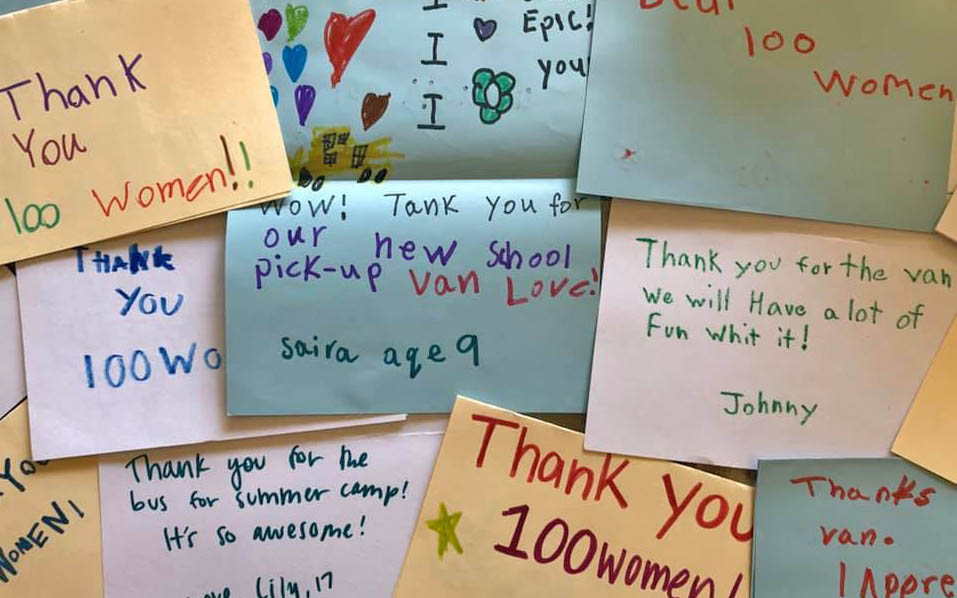 Thank
You
100 Women!!
I
I
I
Epic!
you
100
Women
THANK
YOU
100 WO
WOW! Tank you for
our new School
pick-up van Love!
saira age 9
Thank you for the van
We will Have a lot of
Fun whit it!
Johnny
WOMEN!
Thank you for the
bus for summer camp!
It's so awesome!
Lily, 17
Thank you
100 women!
Thanks
van.
I Appre